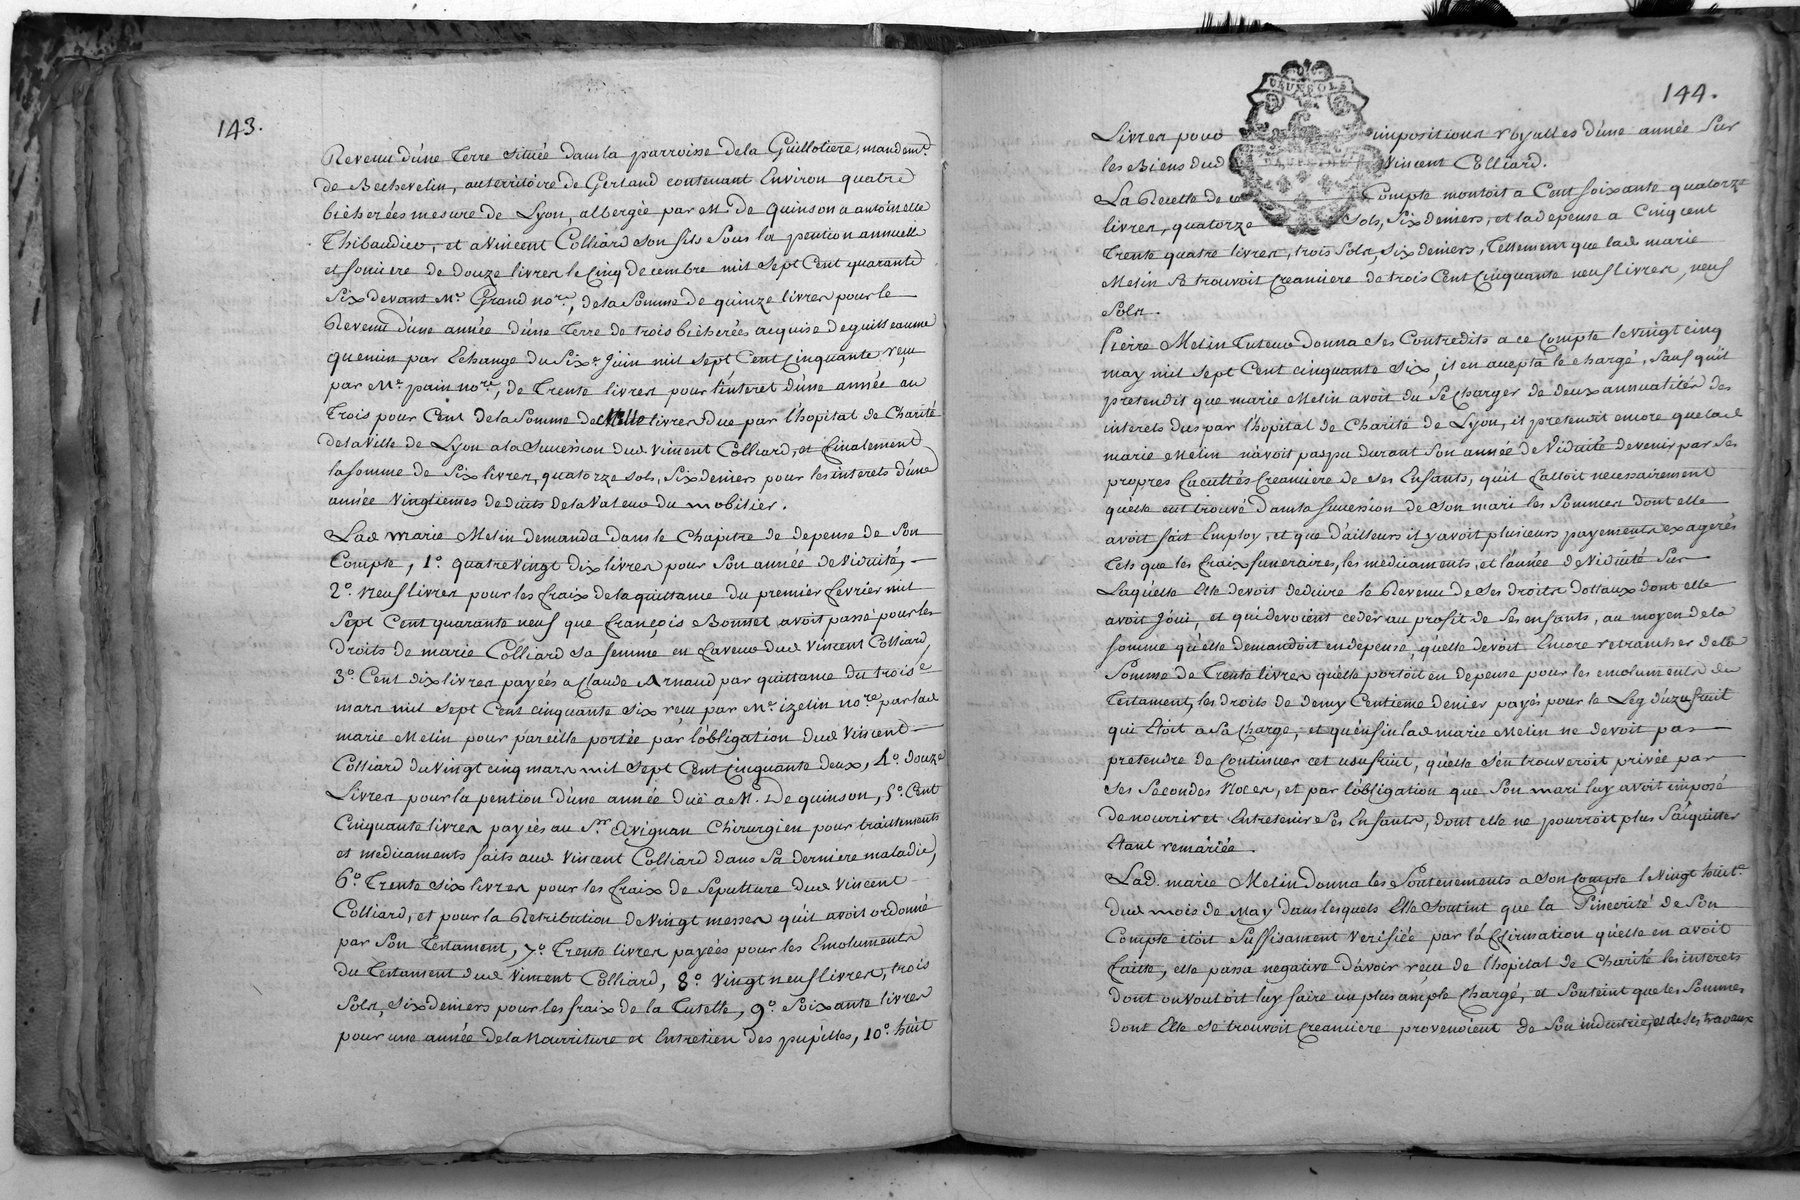 143.
Revenu d'une Terre située dans la parroisse de la Guillotiere, mandemt.
de Bechevelin, au territoire de Gerland contenant Environ quatre
bicherées mesure de Lyon, albergée par M. De quinson a antoinette
Thibaudier, et a Vincent Colliard son fils sous la pention annuelle
et fonciere de douze livres le Cinq decembre mil sept Cent quarante
Six devant Me. Grand nore, de la Somme de quinze livres pour le
Revenu d'une année d'une Terre de trois bicherées acquise de guilleaume
quenin par Echange du Sixe. Juin mil sept Cent Cinquante reçu
par Me. pain nore, de Trente livres pour l'interet d'une année au
Trois pour Cent de la Somme de Mille livres due par l'hopital de Charité
de la Ville de Lyon a la Succession dud Vincent Colliard, et finalement
la somme de Six livres, quatorze sols, Six deniers pour les interets d'une
année Vingtiemes deduits de la Valeur du mobilier.
Lad marie Melin demanda dans le Chapitre de depense de Son
Compte, 1o. quatre Vingt dix livres pour Son année de Viduité,
2o. Neuf livres pour les fraix de la quittance du premier fevrier mil
Sept Cent quarante neuf que françois Bonnet avoit passé pour les
droits de marie Colliard sa femme en faveur dud Vincent Colliard,
3o. Cent dix livres payées a Claude Arnaud par quittance du troise
mars mil sept Cent cinquante six reçu par Me. izelin nore par lad
marie Melin pour pareille portée par l'obligation dud Vincent
Colliard du Vingt cinq mars mil sept Cent Cinquante deux, 4o. douze
Livres pour la pention d'une année duë a M. De quinson, 5o. Cent
Cinquante livres payées au Sr. Avignan Chirurgien pour traittements
et medicaments faits aud Vincent Colliard dans Sa derniere maladie,
6o. Trente Six livres pour les fraix de Sepulture dud Vincent
Colliard, et pour la Retribution de Vingt messes qu'il avoit ordonné
par Son Testament, 7o. Trente livres payées pour les Emoluments
du Testament dud Vincent Colliard, 8o. Vingt neuf livres, trois
Sols, Six deniers pour les fraix de la Tutelle, 9o. Soixante livres
pour une année de la Nourriture et Entretien des pupilles, 10o. huit
144.
Livres pour impositions royalles d'une année Sur
les Biens dud Vincent Colliard.
La Recette de ce Compte montoit a Cent soixante quatorze
livres, quatorze Sols, Six deniers, et la depense a Cinq cent
Trente quatre livres, trois Sols, Six deniers, Tellement que lad marie
Melin se trouvoit Creanciere de trois Cent Cinquante neuf livres, neuf
Sols.
Pierre Melin Tuteur donna Ses Contredits a ce Compte le Vingt cinq
may mil sept Cent cinquante six, il en accepta le chargé, Sauf qu'il
pretendit que marie Melin avoit du Se Charger de deux annualités des
interets dus par l'hopital de Charité de Lyon, il pretendit encore que lad
marie Melin n'avoit pas pu durant Son année de Viduité devenir par Ses
propres facultés Creanciere de Ses Enfants, qu'il falloit necessairement
qu'elle eut trouvé dans la Succession de Son mari les Sommes dont elle
avoit fait Employ, et que d'ailleurs il y avoit plusieurs payements exagerés
Tels que les fraix funeraires, les medicaments, et l'année de Viduité Sur
Laquelle Elle devoit deduire le Revenu de Ses droits dottaux dont elle
avoit Joui, et qui devoient ceder au profit de Ses enfants, au moyen de la
somme qu'elle demandoit en depense, qu'elle devoit Encore retrancher de la
Somme de Trente livres qu'elle portoit en depense pour les emoluments du
Testament, les droits de demy Centieme denier payés pour le Leg d'uzufruit
qui Etoit a Sa Charge, et qu'enfin lad marie Melin ne devoit pas
pretendre de Continuer cet usufruit, qu'elle s'en trouveroit privée par
Ses Secondes Noces, et par l'obligation que Son mari luy avoit imposé
de nourrir et Entretenir Ses Enfants, dont elle ne pourroit plus S'acquitter
Etant remariée.
Lad. marie Melin donna les Soutenements a Son Compte le Vingt huite.
dud mois de May dans lesquels Elle Soutint que la Sincerité de Son
Compte étoit Suffisament Verifiée par l'affirmation qu'elle en avoit
faitte, elle passa negative d'avoir reçu de l'hopital de Charité les interets
dont on Vouloit luy faire un plus ample Chargé, et Soutint que les Sommes
dont Elle Se trouvoit Creanciere provenoient de Son industrie, et de Ses travaux